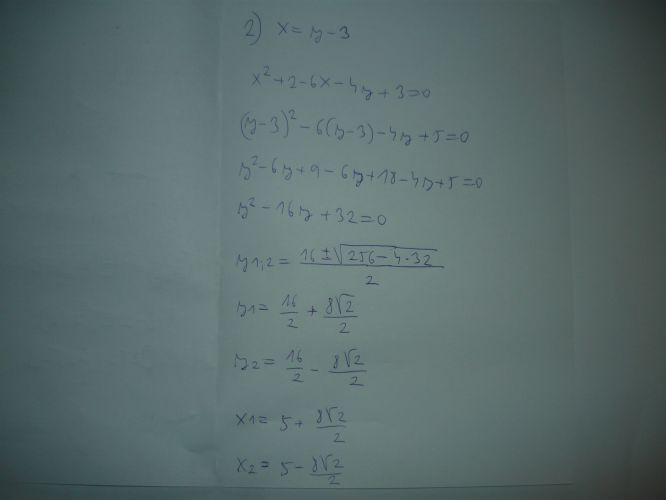 2) x = y - 3
x² + 2 - 6x - 4y + 3 = 0
(y - 3)² - 6(y - 3) - 4y + 5 = 0
y² - 6y + 9 - 6y + 18 - 4y + 5 = 0
y² - 16y + 32 = 0
y1,2 = (16 ± √(256 - 4·32))/2
y1 = 16/2 + 8√2/2
y2 = 16/2 - 8√2/2
x1 = 5 + 8√2/2
x2 = 5 - 8√2/2